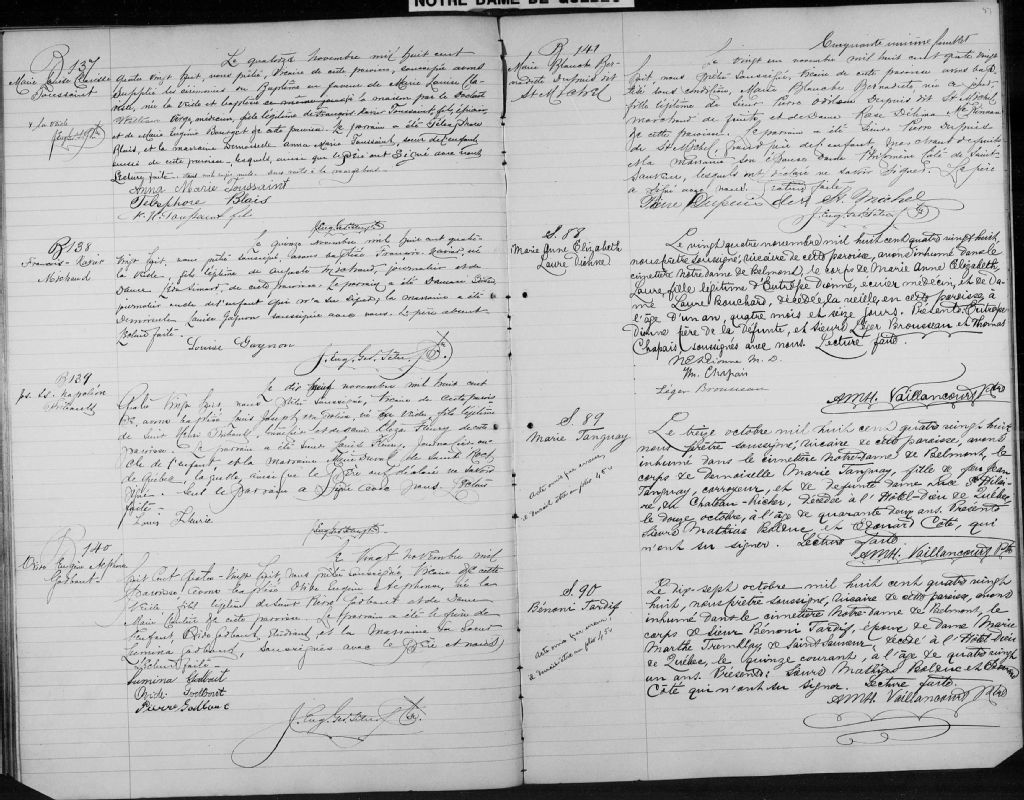 NOTRE DAME DE QUEBEC
B 137
Marie Louise Clarisse
Toussaint
Le quatorze novembre mil huit cent
quatre vingt huit, nous prêtre, vicaire de cette paroisse, soussigné avons
suppléé les cérémonies du Baptême en faveur de Marie Louise Cla-
risse, née la veille et baptisée à la maison par le Docteur
médecin, fille légitime de François Xavier Toussaint, épicier,
et de Marie Eugénie Bourget de cette paroisse. Le parrain a été Télesphore
Blais, et la marraine Demoiselle Anna Marie Toussaint, soeur de l'enfant,
aussi de cette paroisse, lesquels, ainsi que le père ont signé avec nous.
Lecture faite.
Anna Marie Toussaint
Télesphore Blais
F. X. Toussaint fils
B 138
François-Xavier
Michaud
Le quinze novembre mil huit cent quatre-
vingt huit, nous prêtre soussigné, avons baptisé François Xavier, né
la veille, fils légitime de Auguste Michaud, journalier et de
Dame Simard, de cette paroisse. Le parrain a été
journalier de l'enfant qui n'a su signer, la marraine a été
Demoiselle Louise Gagnon soussignée avec nous. Le père absent.
Lecture faite.
Louise Gagnon
B 139
Jos. Ls. Napoléon
Thibault
Le dix neuf novembre mil huit cent
quatre vingt huit, nous prêtre soussigné, vicaire de cette parois-
se, avons baptisé Louis Joseph Napoléon, né la veille, fils légitime
de Sieur Thibault, et de Dame Eliza Fleury de cette
paroisse. Le parrain a été Sieur Louis Fleury, journalier, on-
cle de l'enfant et la marraine Marie Duval de Saint Roch
de Québec laquelle, ainsi que le père ont déclaré ne savoir
signer. Seul le parrain a signé avec nous. Lecture
faite.
Louis Fleurie
B 140
Ovide Eugène Alphonse
Godbout
Le vingt novembre mil
huit cent quatre-vingt huit, nous prêtre soussigné, vicaire de cette
paroisse, avons baptisé Ovide Eugène Alphonse, né la
veille, fils légitime de Sieur Pierre Godbout et de Dame
Marie de cette paroisse. Le parrain a été le frère de
l'enfant, Ovide Godbout, étudiant et la marraine sa soeur
Lumina Godbout, soussignés avec le père et nous.
Lecture faite.
Lumina Godbout
Ovide Godbout
Pierre Godbout
Cinquante unième feuillet
B 141
Marie Blanche Ber-
nadette Dupuis dit
St Michel
Le vingt un novembre mil huit cent quatre vingt
huit, nous prêtre soussigné, vicaire de cette paroisse avons bap-
tisé sous condition, Marie Blanche Bernadette, née
fille légitime de Sieur Pierre Dupuis dit St Michel
marchand de fruits, et de Dame Rose Délima McKinnon
de cette paroisse. Le parrain a été Sieur Pierre Dupuis
dit St Michel, grand père de l'enfant, marchand de fruits,
et la marraine son épouse Dame Philomène Côté de Saint-
Sauveur, lesquels ont déclaré ne savoir signer. Le père
a signé avec nous. Lecture faite.
Pierre Dupuis dit St. Michel
S. 88
Marie Anne Elizabeth
Laure Dionne
Le vingt quatre novembre mil huit cent quatre vingt huit,
nous prêtre soussigné, vicaire de cette paroisse, avons inhumé dans le
cimetière Notre-Dame de Belmont, le corps de Marie Anne Elizabeth
Laure, fille légitime d'Eutrope Dionne, écuier, médecin, et de Da-
me Laure Bouchard, décédée la veille, en cette paroisse, à
l'âge d'un an, quatre mois et seize jours. Présents: Eutrope
Dionne père de la défunte, et Sieurs Léger Brousseau et Thomas
Chapais soussignés avec nous. Lecture faite.
N E Dionne M. D.
Th. Chapais
Léger Brousseau
AMH. Vaillancourt Ptre
S. 89
Marie Tanguay
Acte omis par erreur,
il devait être au folio 45
Le treize octobre mil huit cent quatre vingt huit
nous prêtre soussigné, vicaire de cette paroisse, avons
inhumé dans le cimetière Notre-Dame de Belmont, le
corps de demoiselle Marie Tanguay, fille de feu Jean
Tanguay, corroyeur, et de défunte dame Luce St Hilai-
re, du Chateau-Richer, décédée à l'Hôtel-Dieu de Québec,
le douze octobre, à l'âge de quarante deux ans. Présents
Sieurs Mathias Bolduc et Edouard Côté, qui
n'ont su signer. Lecture faite.
AMH. Vaillancourt Ptre
S. 90
Bénoni Tardif
Acte omis par erreur,
il devait être au folio 45
Le dix-sept octobre mil huit cent quatre vingt
huit, nous prêtre soussigné, vicaire de cette paroisse, avons
inhumé dans le cimetière Notre-Dame de Belmont, le
corps de Sieur Bénoni Tardif, époux de Dame Marie
Marthe Tremblay de Saint Sauveur, décédé à l'Hôtel-Dieu
de Québec, le quinze courant, à l'âge de quatre vingt
un ans. Présents: Sieurs Mathias Bolduc et Edouard
Côté qui n'ont su signer. Lecture faite.
AMH. Vaillancourt Ptre